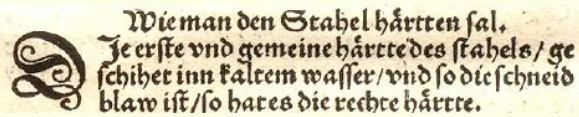 Wie man den Stahel härtten sal.
Die erste vnd gemeine härtte des stahels/ ge
schihet inn kaltem wasser/ vnd so die schneid
blaw ist/ so hat es die rechte härtte.